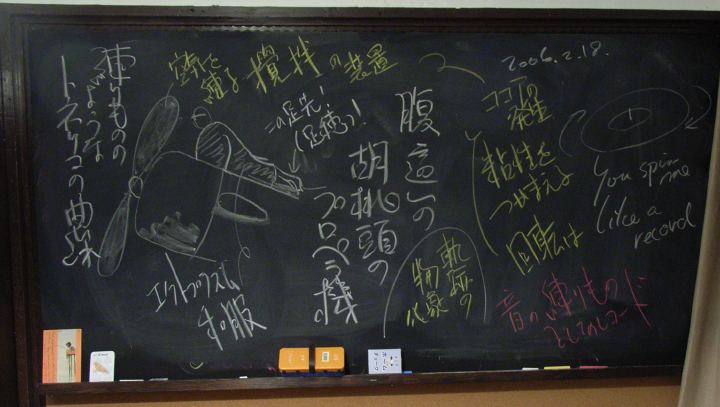 練りものの
ような
トネリコの曲がれ
空気を
練る
攪拌の装置
この足先!
(足癖)!
腹這いの
胡桃頭の
プロペラ機
エクトプラズム
和服
2006.2.18.
ココアの
発生
粘性を
つかまえる
回転は
物象
軌跡の
You spin
me
like a
record
音の練りもの
としてのレコード